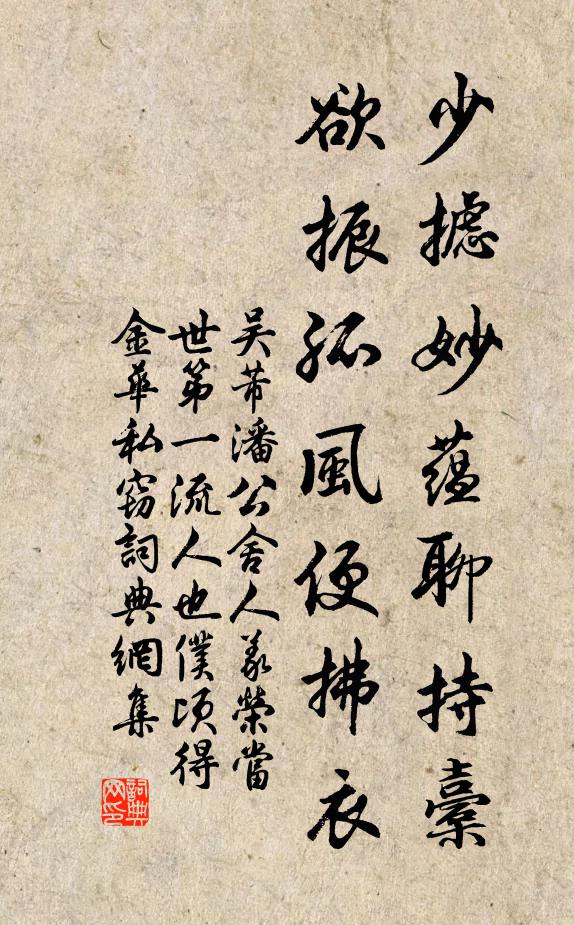 少攄妙蘊聊持橐
欲振孤風便拂衣
吳芾潘公舍人義榮當
世第一流人也僕頃得
金華私窃詞典網集
詞典
网印